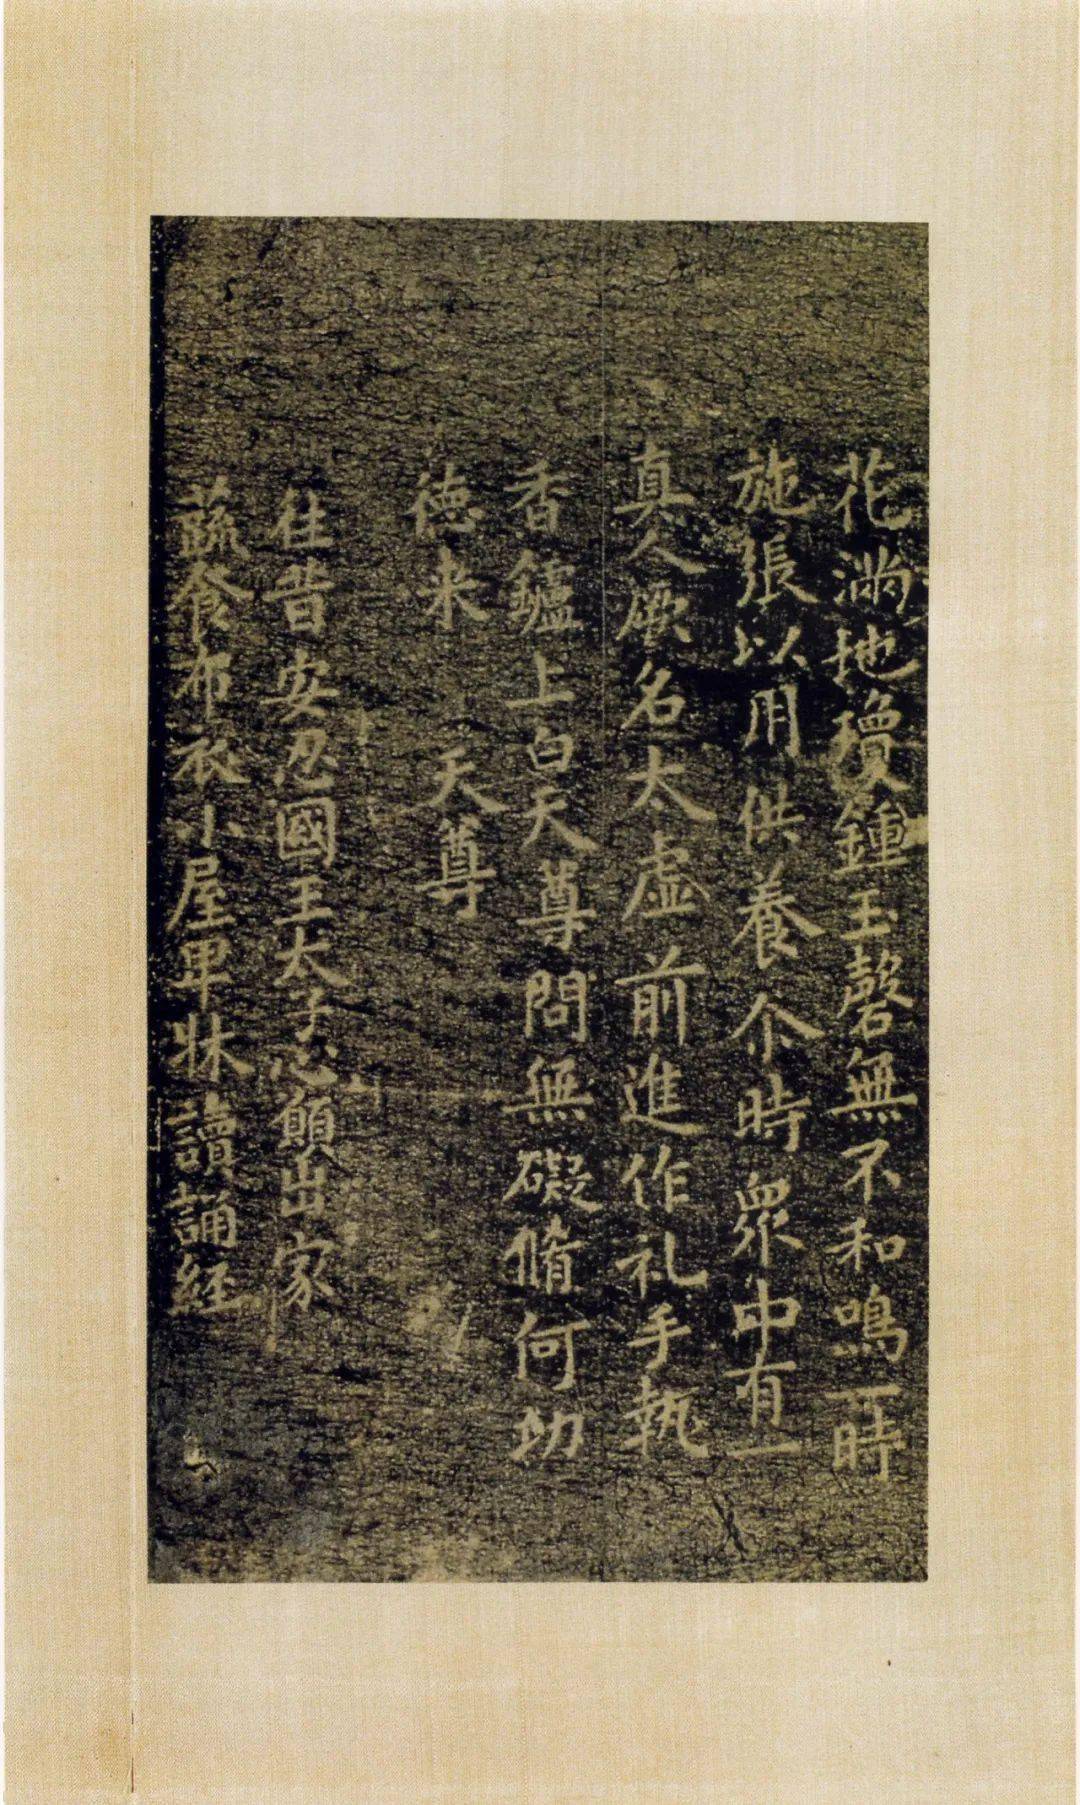 花滿地瓊鍾玉磬無不和鳴一時
施張以用供養尒時衆中有一
真人厥名太虛前進作礼手執
香鑪上白天尊問無礙脩何功
徳来 天尊
往昔安忍國王太子心願出家
蔬食布衣小屋卑牀讀誦経